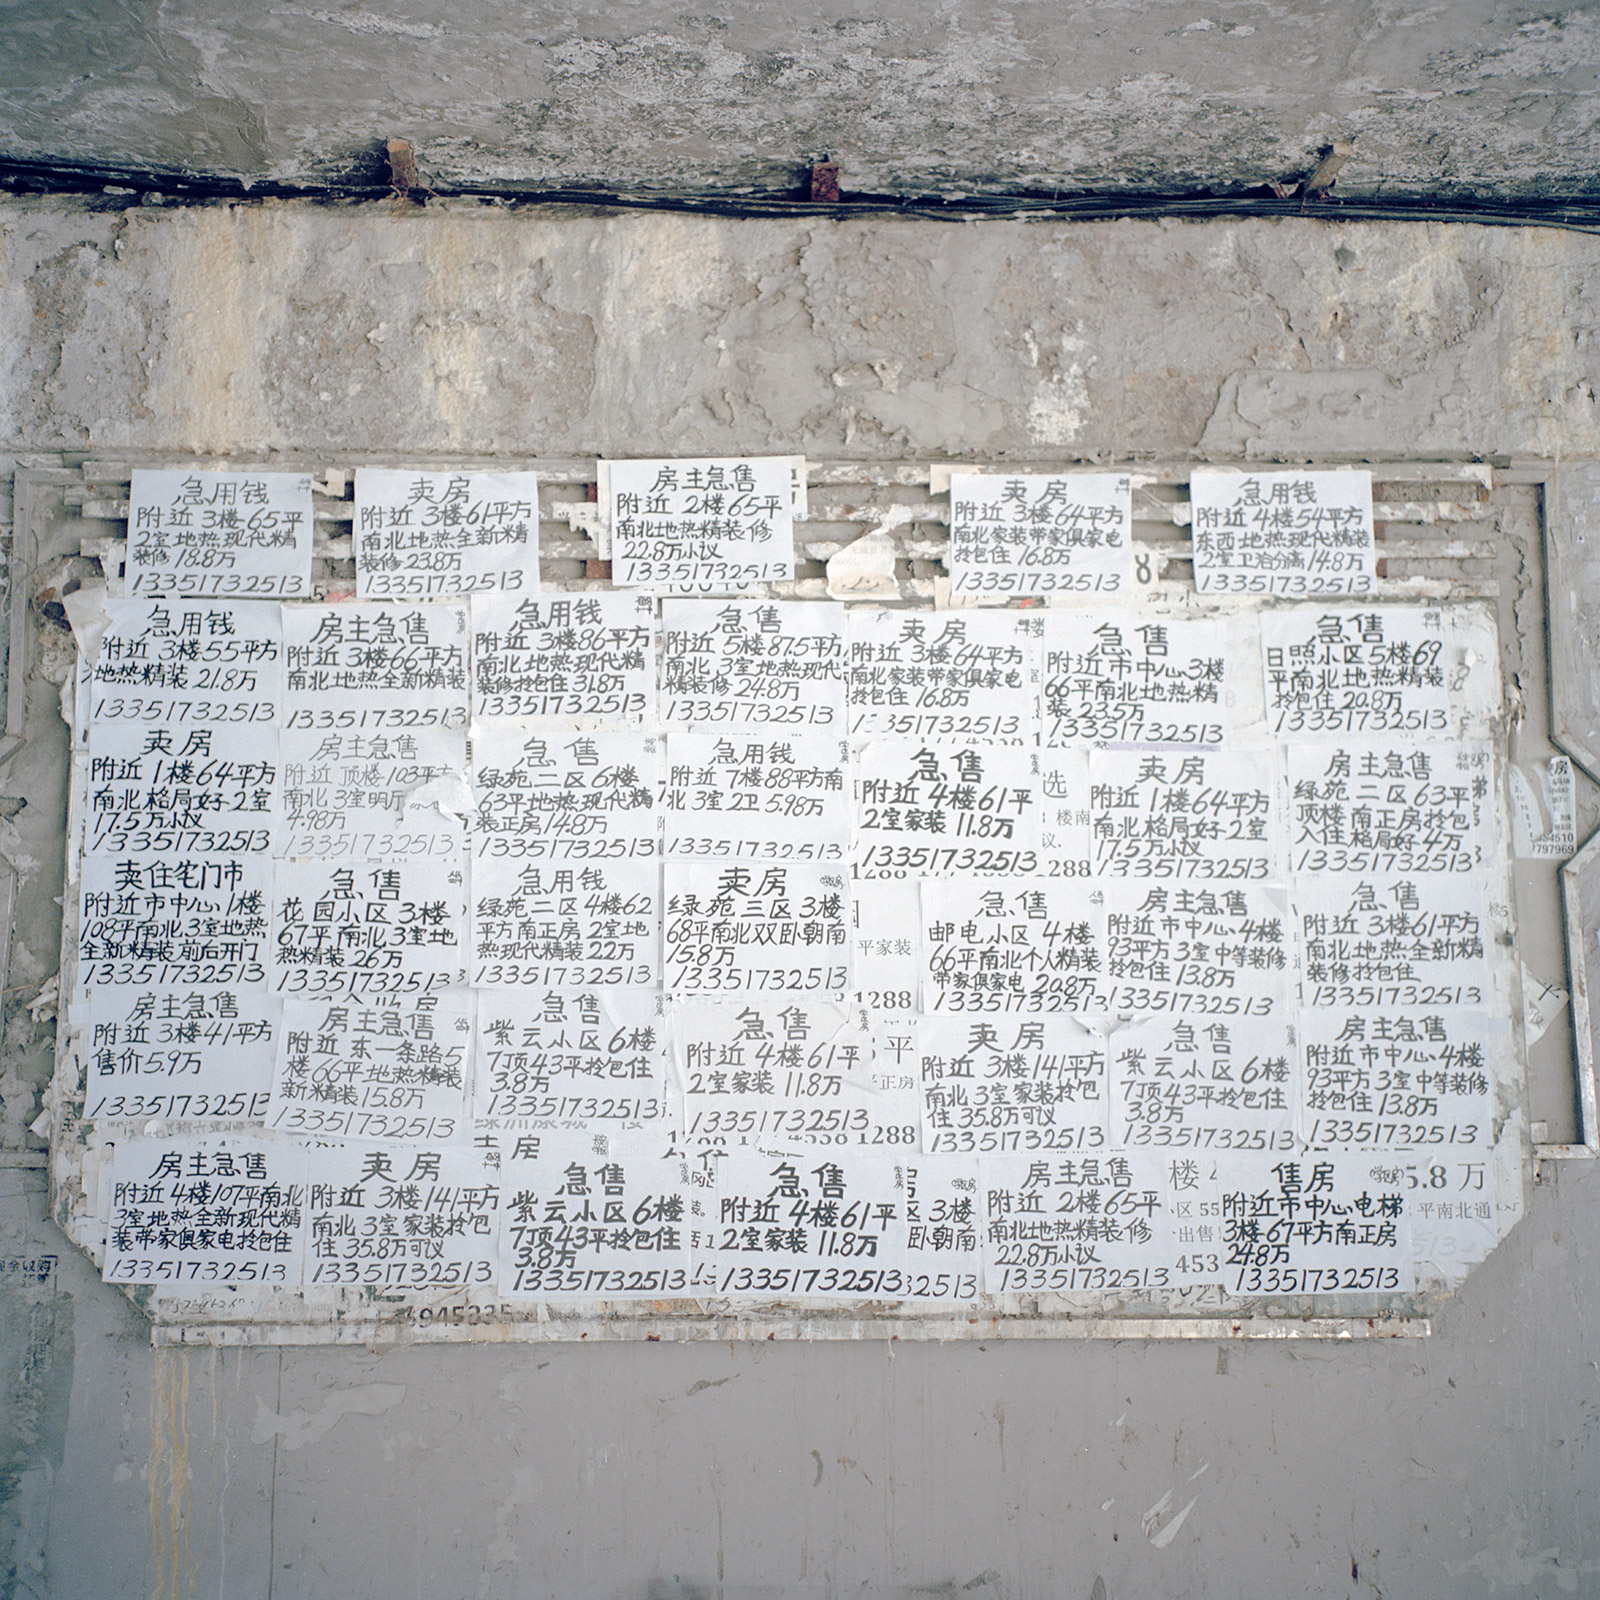 急用钱
附近3楼65平
2室地热现代精
装修18.8万
13351732513
卖房
附近3楼61平方
南北地热全新精
装修23.8万
13351732513
房主急售
附近2楼65平
南北地热精装修
22.8万小议
13351732513
卖房
附近3楼64平方
南北家装带家俱家电
拎包住16.8万
13351732513
急用钱
附近4楼54平方
东西地热现代精装
2室卫浴分离14.8万
13351732513
急用钱
附近3楼55平方
地热精装21.8万
13351732513
房主急售
附近3楼66平方
南北地热全新精装
13351732513
急用钱
附近3楼86平方
南北地热现代精
装修拎包住31.8万
13351732513
急售
附近5楼87.5平方
南北3室地热现代
精装修24.8万
13351732513
卖房
附近3楼64平方
南北家装带家俱家电
拎包住16.8万
13351732513
急售
附近市中心3楼
66平南北地热精
装23.5万
13351732513
急售
日照小区5楼69
平南北地热精装
拎包住20.8万
13351732513
卖房
附近1楼64平方
南北格局好2室
17.5万小议
13351732513
房主急售
附近顶楼103平方
南北3室明厅
4.98万
13351732513
急售
绿苑二区6楼
63平地热现代精
装正房14.8万
13351732513
急用钱
附近7楼88平方南
北3室2卫5.98万
13351732513
急售
附近4楼61平
2室家装11.8万
13351732513
卖房
附近1楼64平方
南北格局好2室
17.5万小议
13351732513
房主急售
绿苑二区63平
顶楼南正房拎包
入住格局好4万
13351732513
卖住宅门市
附近市中心1楼
108平南北3室地热
全新精装前后开门
13351732513
急售
花园小区3楼
67平南北3室地
热精装26万
13351732513
急用钱
绿苑二区4楼62
平方南正房2室地
热现代精装22万
13351732513
卖房
绿苑三区3楼
68平南北双卧朝南
15.8万
13351732513
急售
邮电小区4楼
66平南北个人精装
带家俱家电20.8万
13351732513
房主急售
附近市中心4楼
93平方3室中等装修
拎包住13.8万
13351732513
急售
附近3楼61平方
南北地热全新精
装修拎包住
13351732513
房主急售
附近3楼41平方
售价5.9万
13351732513
房主急售
附近东一条路5
楼66平地热精装
新精装15.8万
13351732513
急售
紫云小区6楼
7顶43平拎包住
3.8万
13351732513
急售
附近4楼61平
2室家装11.8万
13351732513
卖房
附近3楼141平方
南北3室家装拎包
住35.8万可议
13351732513
急售
紫云小区6楼
7顶43平拎包住
3.8万
13351732513
房主急售
附近市中心4楼
93平方3室中等装修
拎包住13.8万
13351732513
房主急售
附近4楼107平南北
3室地热全新现代精
装带家俱家电拎包住
13351732513
卖房
附近3楼141平方
南北3室家装拎包
住35.8万可议
13351732513
急售
紫云小区6楼
7顶43平拎包住
3.8万
13351732513
急售
附近4楼61平
2室家装11.8万
13351732513
3楼
卧朝南
房主急售
附近2楼65平
南北地热精装修
22.8万小议
13351732513
售房
附近市中心电梯
3楼67平方南正房
24.8万
13351732513
5.8万
平南北通